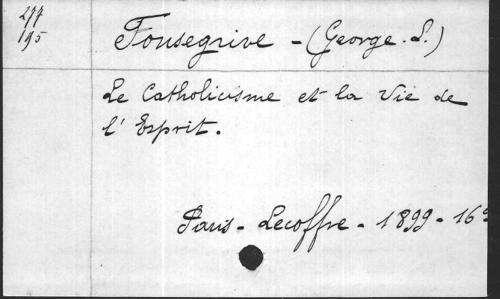 277
195
Fonsegrive - (George. L.)
Le Catholicisme et la Vie de
l'Esprit.
Paris - Lecoffre - 1899 - 16º